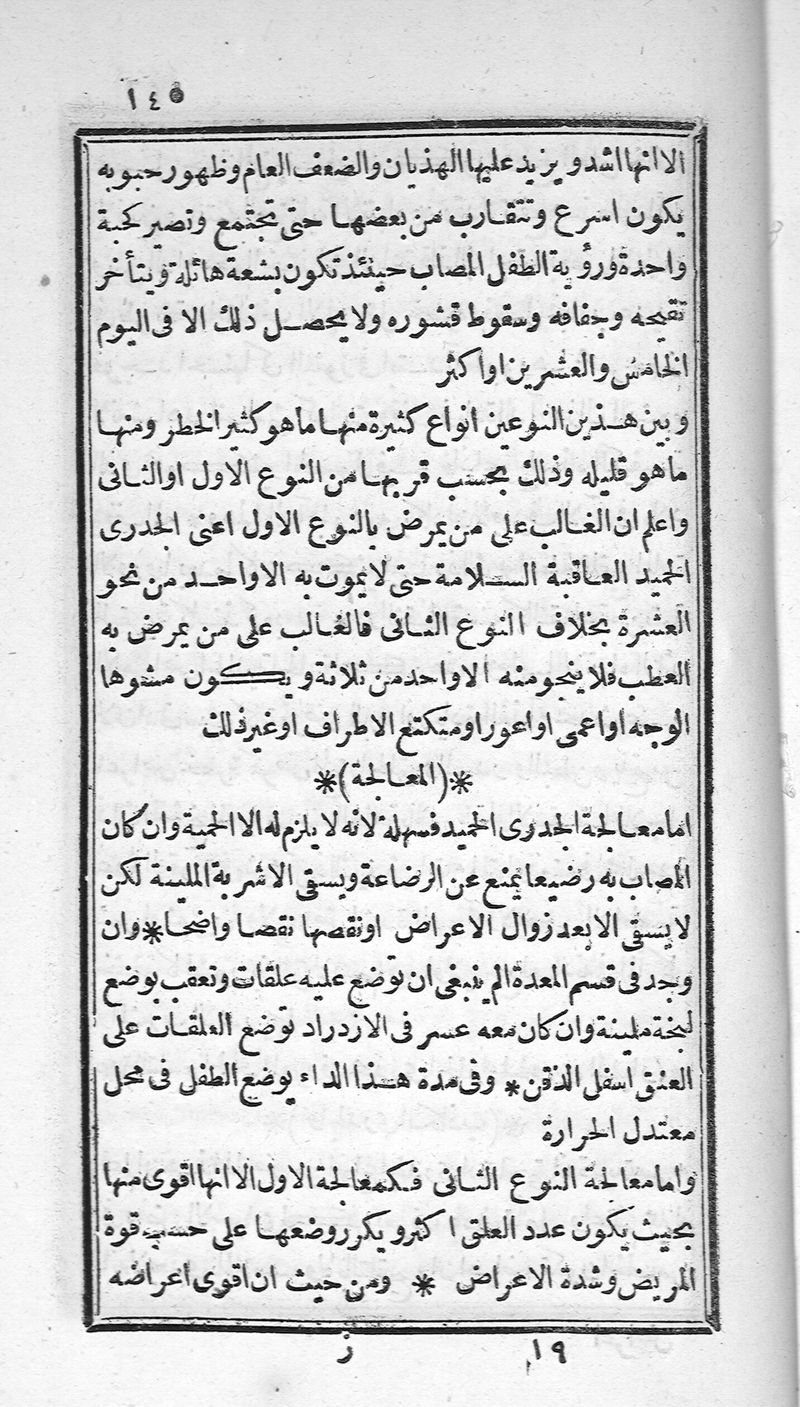 ١٤٥
الا انها اشد ويزيد عليها الهذيان والضعف العام وظهور حبوبه
يكون اسرع وتتقارب من بعضها حتى تجتمع وتصير كحبة
واحدة ورؤية الطفل المصاب حينئذ تكون بشعة هائلة ويتأخر
تقيحه وجفافه وسقوط قشوره ولا يحصل ذلك الا فى اليوم
الخامس والعشرين او اكثر
وبين هذين النوعين انواع كثيرة منها ما هو كثير الخطر ومنها
ما هو قليله وذلك بحسب قربها من النوع الاول او الثانى
واعلم ان الغالب على من يمرض بالنوع الاول اعنى الجدرى
الحميد العاقبة السلامة حتى لا يموت به الا واحد من نحو
العشرة بخلاف النوع الثانى فالغالب على من يمرض به
العطب فلا ينجو منه الا واحد من ثلاثة ويكون مشوها
الوجه او اعمى او اعور او متكتع الاطراف او غير ذلك
*(المعالجة)*
اما معالجة الجدرى الحميد فسهلة لانه لا يلزم له الا الحمية وان كان
المصاب به رضيعا يمنع عن الرضاعة ويسقى الاشربة الملينة لكن
لا يسقى الا بعد زوال الاعراض او نقصها نقصا واضحا * وان
وجد فى قسم المعدة الم ينبغى ان توضع عليه علقات وتعقب بوضع
لبخة ملينة وان كان معه عسر فى الازدراد توضع العلقات على
العنق اسفل الذقن * وفى مدة هذا الداء يوضع الطفل فى محل
معتدل الحرارة
واما معالجة النوع الثانى فكمعالجة الاول الا انها اقوى منها
بحيث يكون عدد العلق اكثر ويكرر وضعها على حسب قوة
المريض وشدة الاعراض * ومن حيث ان اقوى اعراضه
١٩ ز